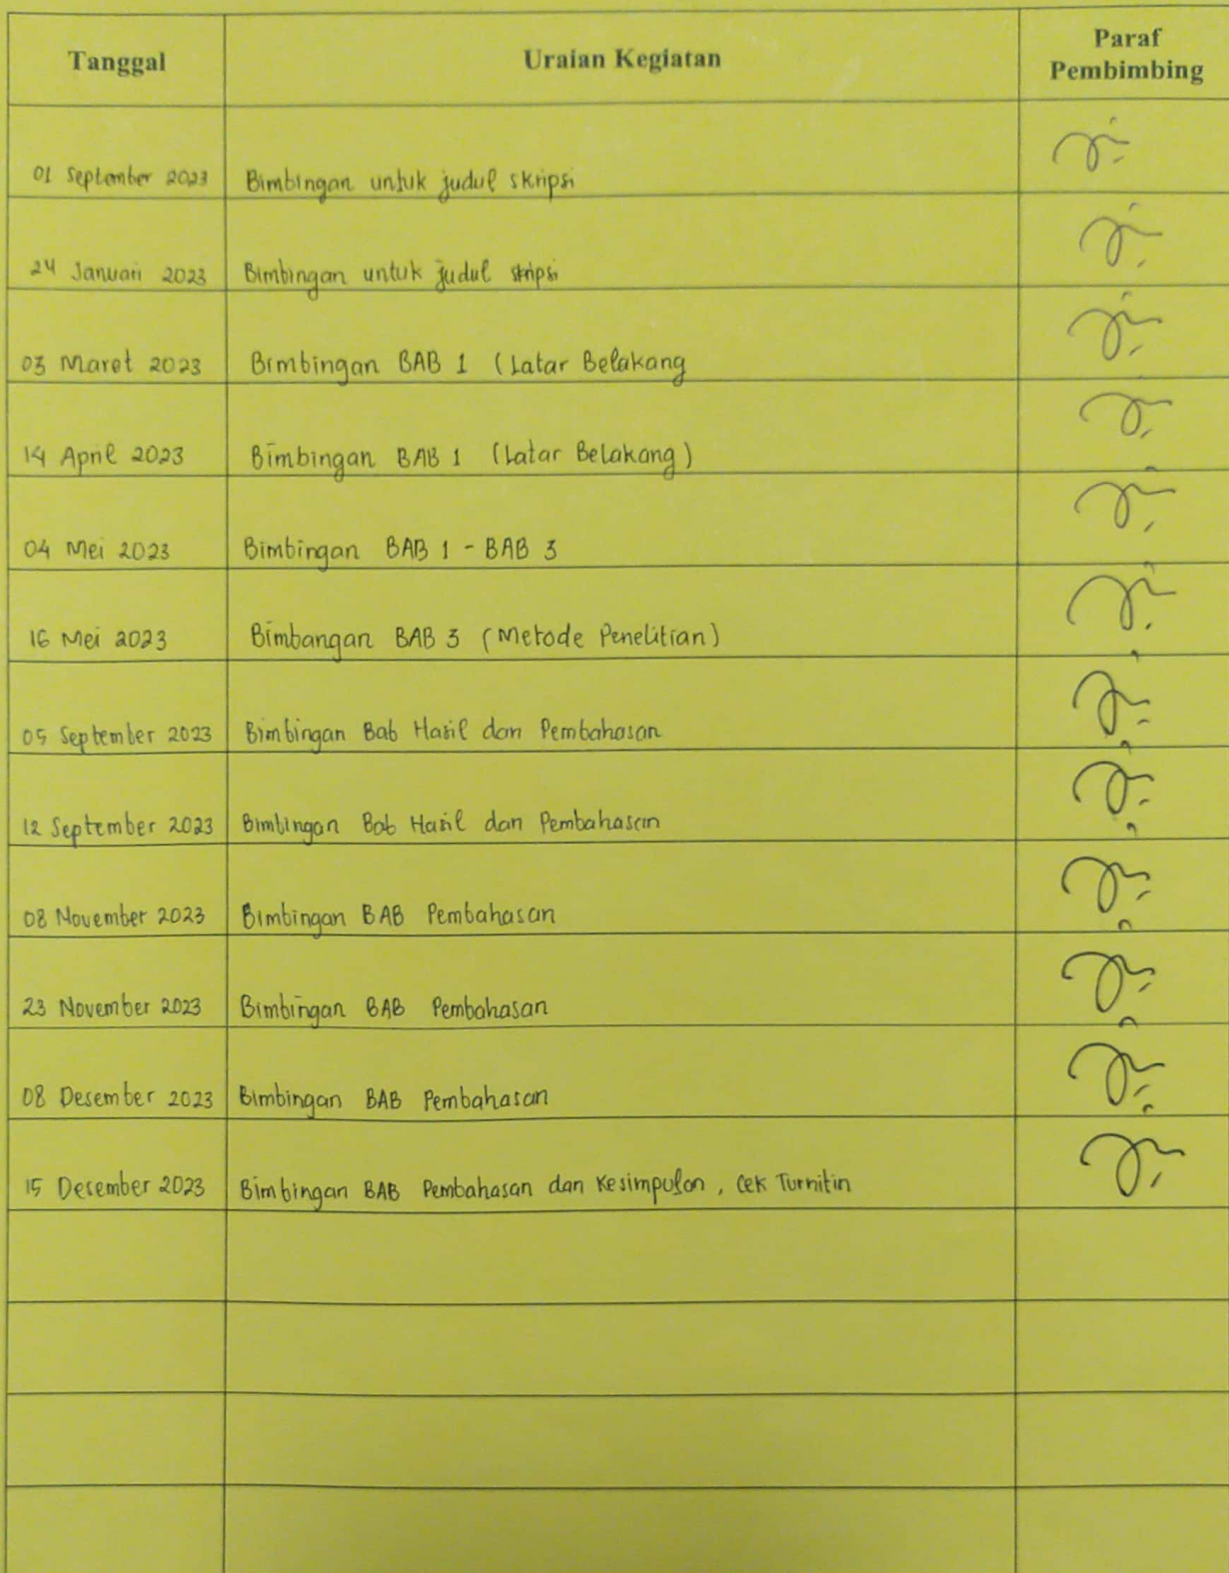 Tanggal Uraian Kegiatan Paraf Pembimbing
01 September 2023 Bimbingan untuk judul skripsi
24 Januari 2023 Bimbingan untuk judul skripsi
03 Maret 2023 Bimbingan BAB 1 (Latar Belakang
14 April 2023 Bimbingan BAB 1 (Latar Belakang)
04 Mei 2023 Bimbingan BAB 1 - BAB 3
16 Mei 2023 Bimbangan BAB 3 (Metode Penelitian)
05 September 2023 Bimbingan Bab Hasil dan Pembahasan
12 September 2023 Bimbingan Bab Hasil dan Pembahasan
08 November 2023 Bimbingan BAB Pembahasan
23 November 2023 Bimbingan BAB Pembahasan
08 Desember 2023 Bimbingan BAB Pembahasan
15 Desember 2023 Bimbingan BAB Pembahasan dan Kesimpulan, Cek Turnitin